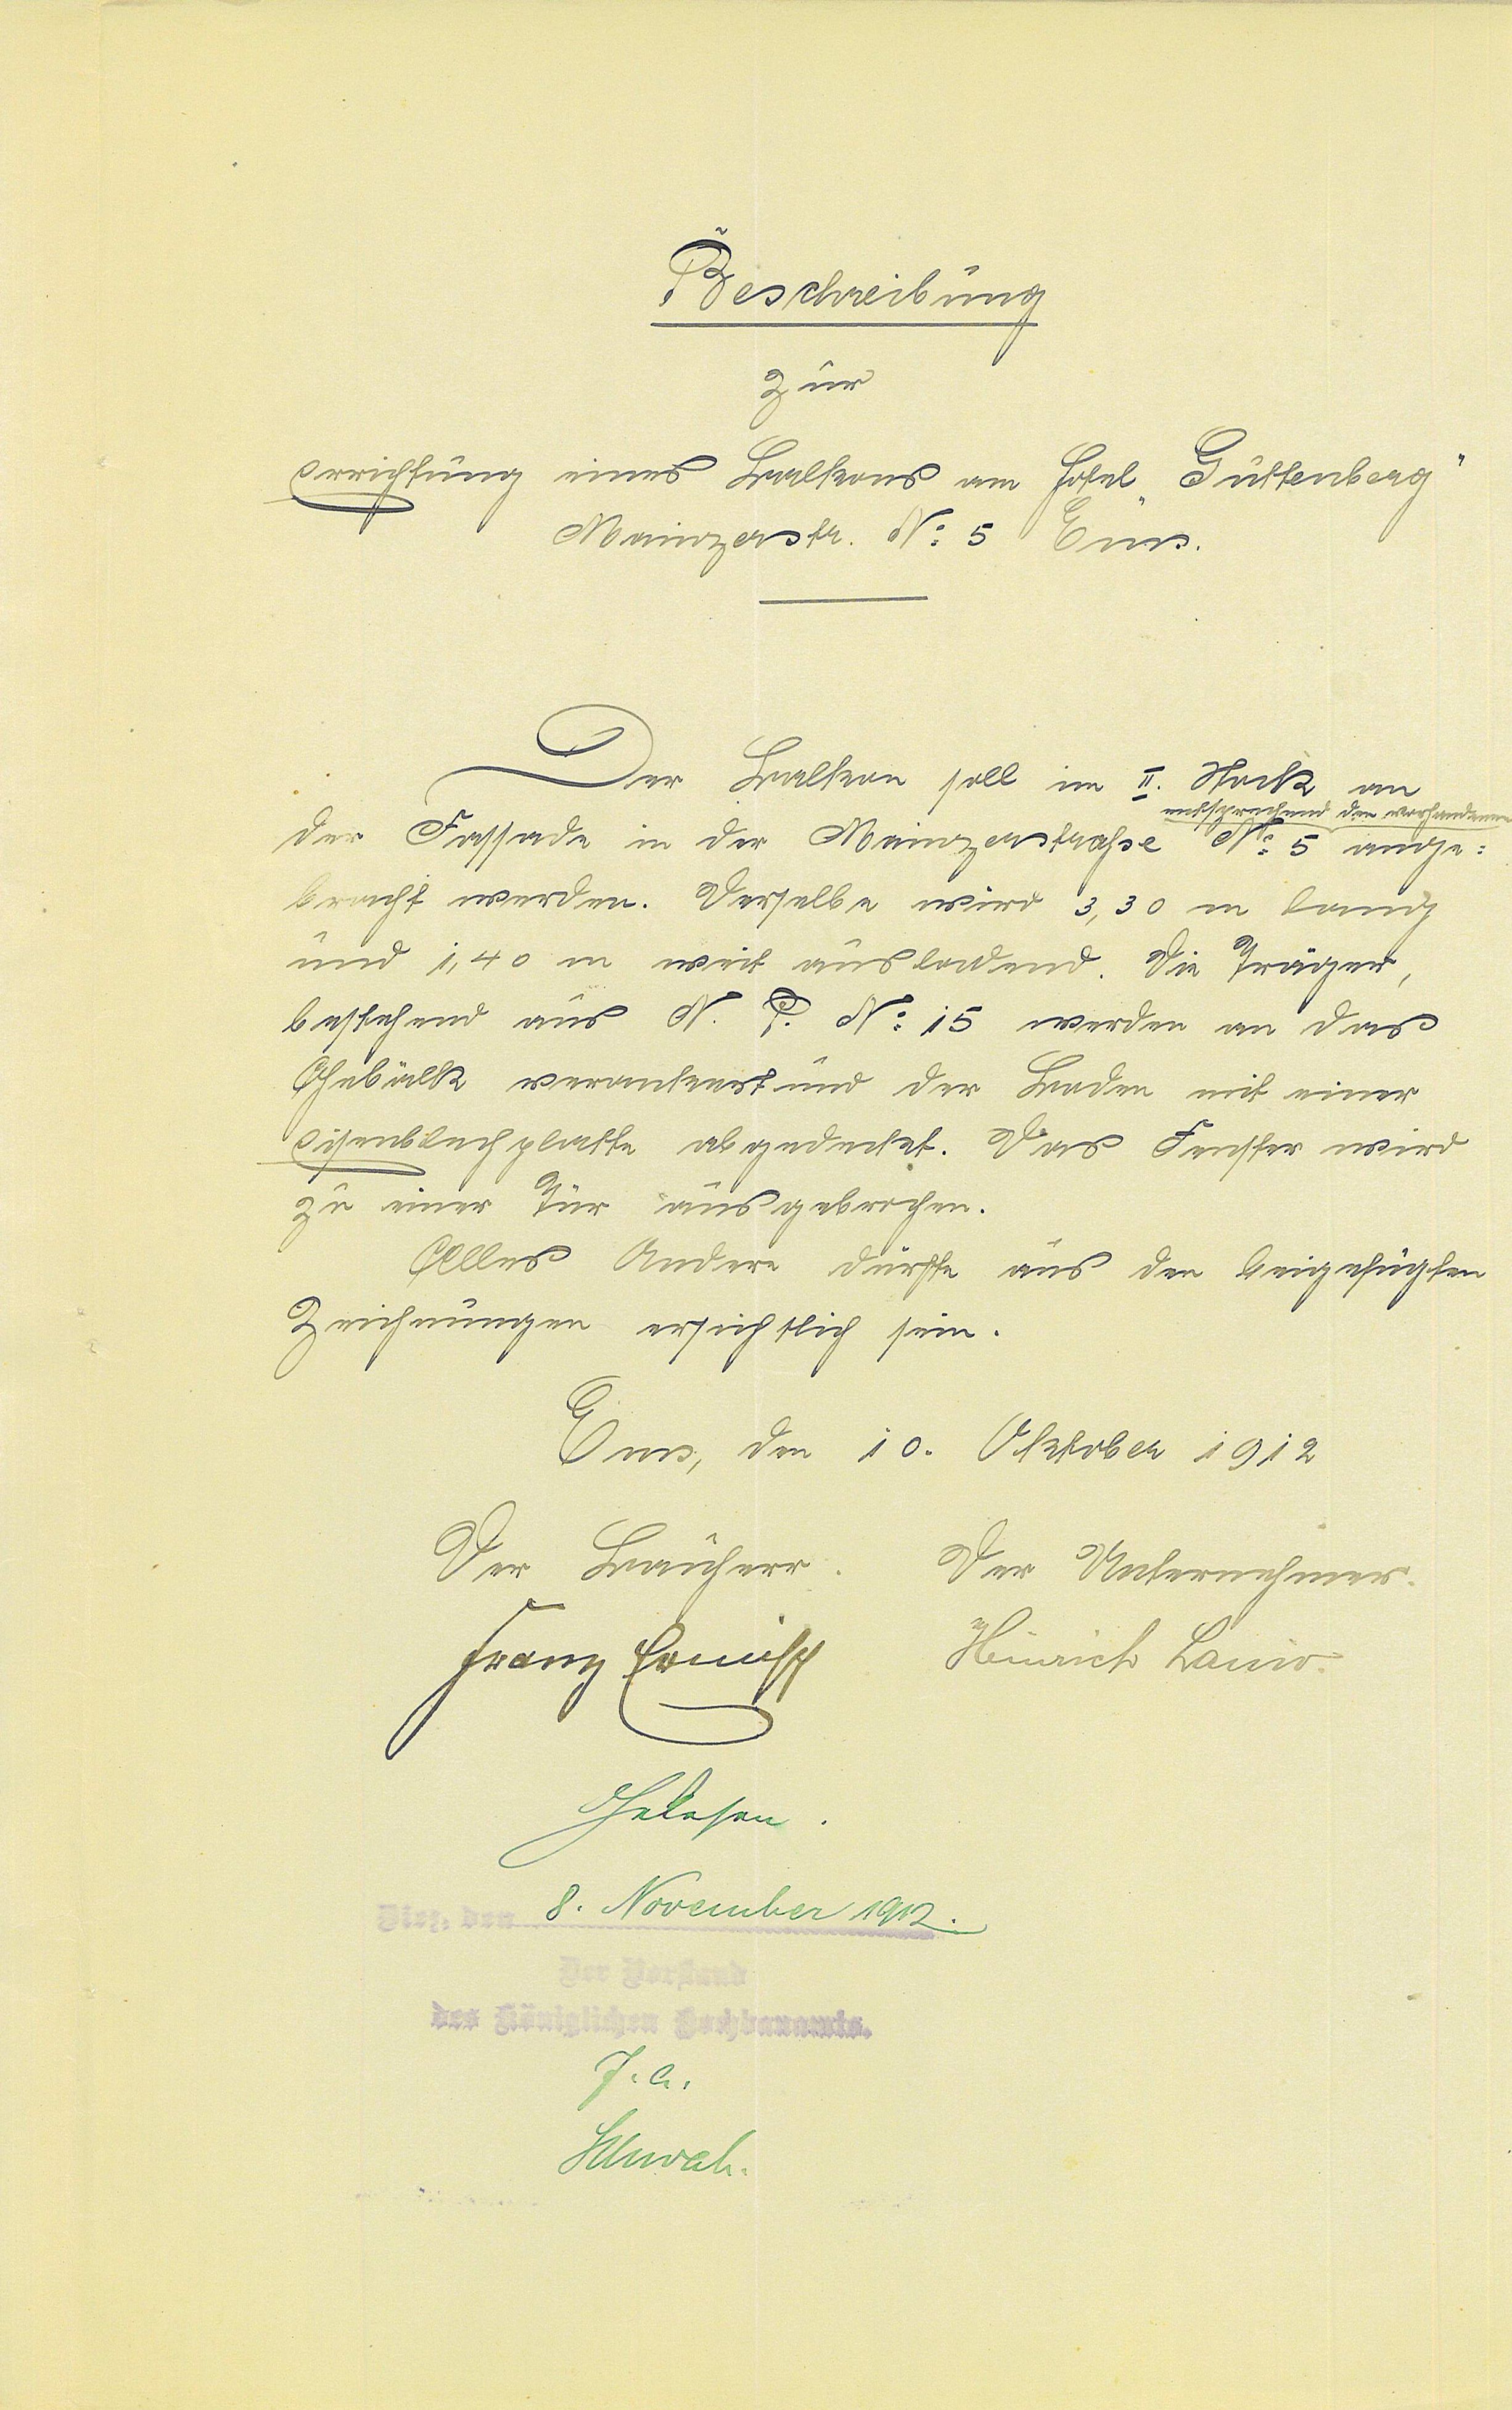 Beschreibung
zur
Errichtung eines Balkons am Hotel „Guttenberg"
Mainzerstr. No: 5 Ems.
Der Balkon soll im II. Stock an
entsprechend den vorhandenen
der Fassade in der Mainzerstraße No: 5 ange:
bracht werden. Derselbe wird 3,30 m lang
und 1,40 m weit ausladend. Die Träger,
bestehend aus N. P. No: 15 werden an das
Gebälk verankert und der Boden mit einer
Eisenblechplatte abgedecket. Das Fenster wird
zu einer Tür ausgebrochen.
Alles Andere dürfte aus den beigefügten
Zeichnungen ersichtlich sein.
Ems, den 10. Oktober 1912
Der Bauherr. Der Unternehmer.
Franz Heinrich
Gelesen.
Diez, den 8. November 1912.
Der Vorstand
des Königlichen Hochbauamts.
J. A.